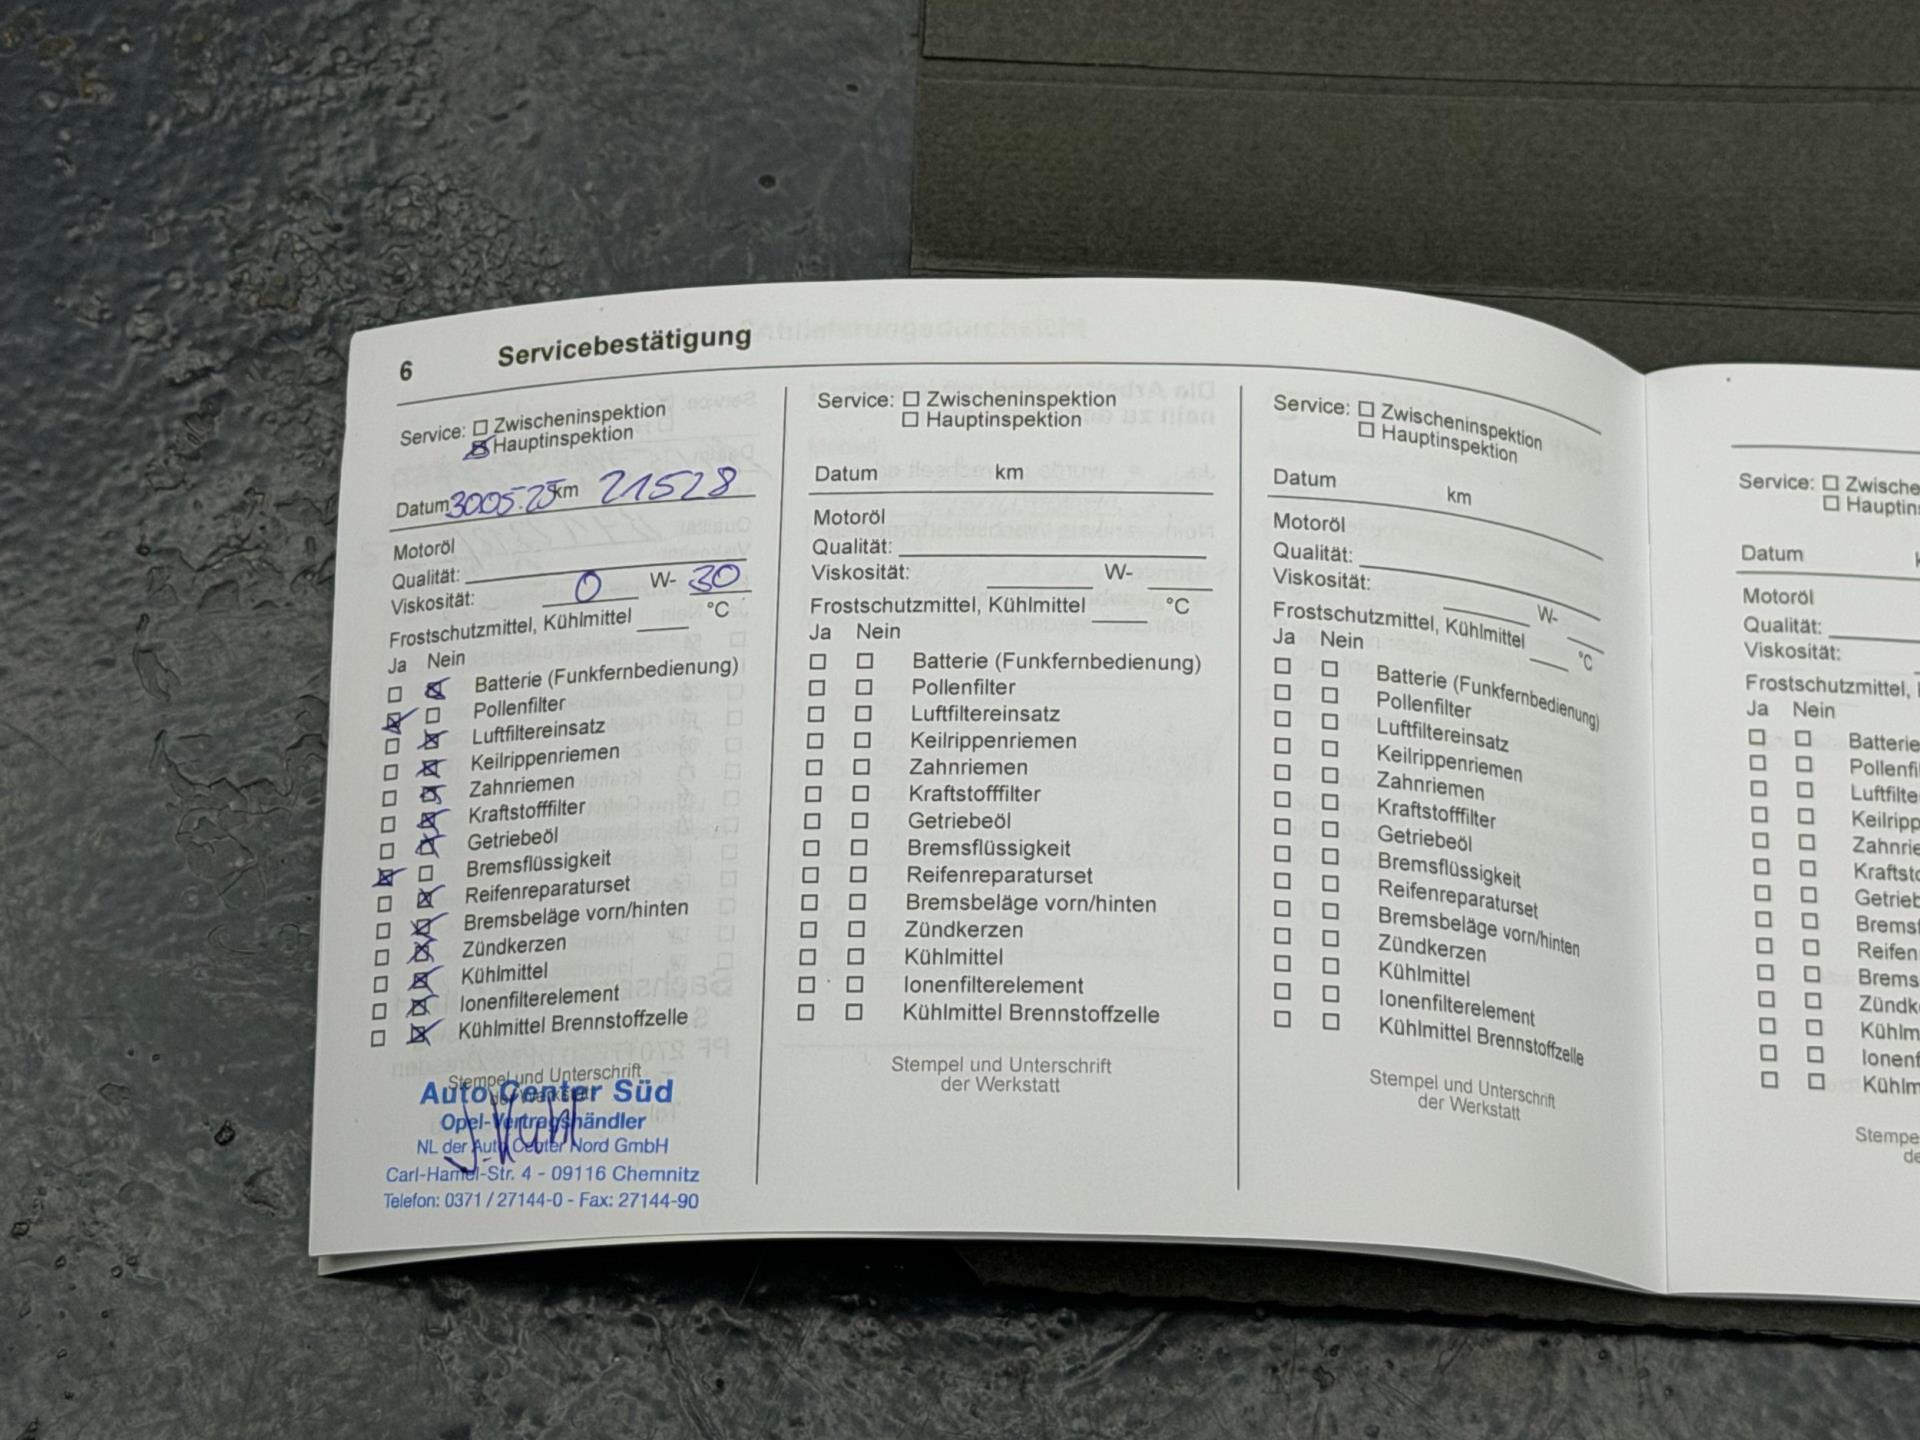 6 Servicebestätigung
Service: Zwischeninspektion
Hauptinspektion
Datum 30.05.25 km 21528
Motoröl
Qualität:
Viskosität: 0 W- 30
Frostschutzmittel, Kühlmittel °C
Ja Nein
Batterie (Funkfernbedienung)
Pollenfilter
Luftfiltereinsatz
Keilrippenriemen
Zahnriemen
Kraftstofffilter
Getriebeöl
Bremsflüssigkeit
Reifenreparaturset
Bremsbeläge vorn/hinten
Zündkerzen
Kühlmittel
Ionenfilterelement
Kühlmittel Brennstoffzelle
Stempel und Unterschrift
der Werkstatt
Auto Center Süd
Opel-Vertragshändler
NL der Auto Center Nord GmbH
Carl-Hamel-Str. 4 - 09116 Chemnitz
Telefon: 0371 / 27144-0 - Fax: 27144-90
Service: Zwischeninspektion
Hauptinspektion
Datum km
Motoröl
Qualität:
Viskosität: W-
Frostschutzmittel, Kühlmittel °C
Ja Nein
Batterie (Funkfernbedienung)
Pollenfilter
Luftfiltereinsatz
Keilrippenriemen
Zahnriemen
Kraftstofffilter
Getriebeöl
Bremsflüssigkeit
Reifenreparaturset
Bremsbeläge vorn/hinten
Zündkerzen
Kühlmittel
Ionenfilterelement
Kühlmittel Brennstoffzelle
Stempel und Unterschrift
der Werkstatt
Service: Zwischeninspektion
Hauptinspektion
Datum km
Motoröl
Qualität:
Viskosität: W-
Frostschutzmittel, Kühlmittel °C
Ja Nein
Batterie (Funkfernbedienung)
Pollenfilter
Luftfiltereinsatz
Keilrippenriemen
Zahnriemen
Kraftstofffilter
Getriebeöl
Bremsflüssigkeit
Reifenreparaturset
Bremsbeläge vorn/hinten
Zündkerzen
Kühlmittel
Ionenfilterelement
Kühlmittel Brennstoffzelle
Stempel und Unterschrift
der Werkstatt
Service: Zwische
Hauptins
Datum
Motoröl
Qualität:
Viskosität:
Frostschutzmittel,
Ja Nein
Batterie
Pollenfil
Luftfilte
Keilripp
Zahnrie
Kraftsto
Getrieb
Bremsf
Reifen
Bremsb
Zündk
Kühlm
Ionenf
Kühlm
Stempe
de